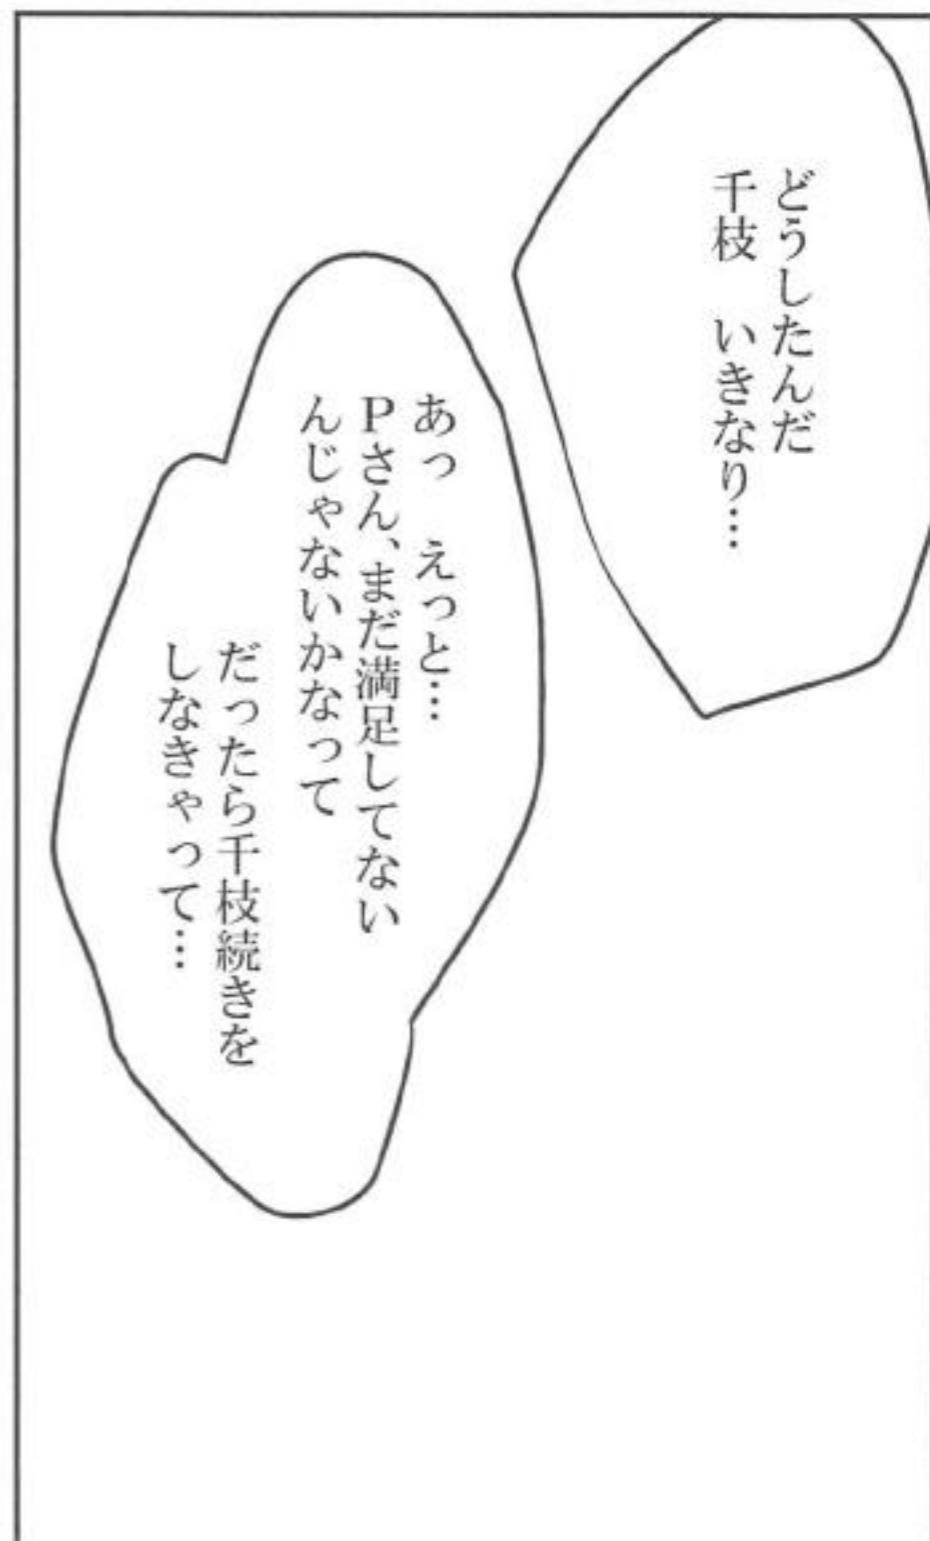 どうしたんだ
千枝　いきなり…
あっ　えっと…
Pさん、まだ満足してない
んじゃないかなって
だったら千枝続きを
しなきゃって…